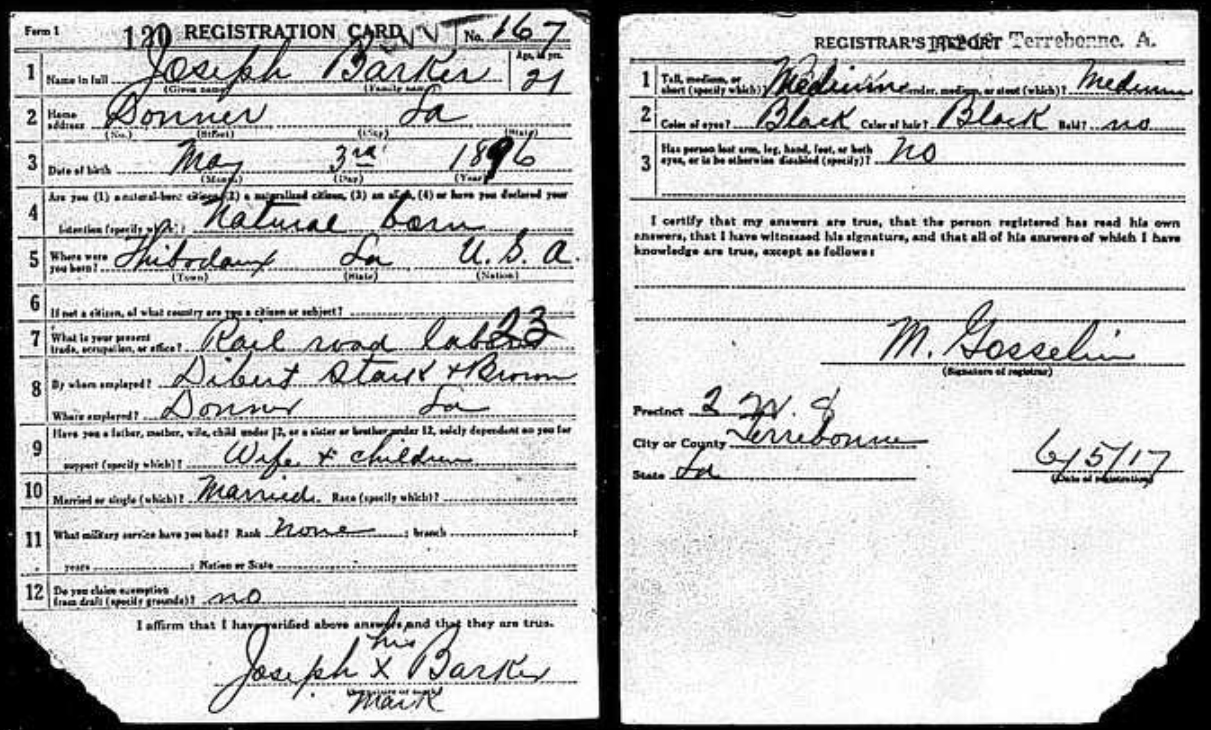 Form 1
130 REGISTRATION CARD No. 167
1 Name in full Joseph Barker Age, in yrs. 21
(Given name) (Family name)
2 Home address Donner La
(No.) (Street) (City) (State)
3 Date of birth May 3rd 1896
(Month) (Day) (Year)
4 Are you (1) a natural-born citizen, (2) a naturalized citizen, (3) an alien, (4) or have you declared your
intention (specify which)? Natural born
5 Where were you born? Thibodaux La U.S.A.
(Town) (State) (Nation)
6 If not a citizen, of what country are you a citizen or subject?
7 What is your present trade, occupation, or office? Rail road 23
8 By whom employed? Dibert Stark & Brown
Where employed? Donner La
9 Have you a father, mother, wife, child under 12, or a sister or brother under 12, solely dependent on you for
support (specify which)? Wife & children
10 Married or single (which)? Married. Race (specify which)?
11 What military service have you had? Rank None ; branch ;
years ; Nation or State
12 Do you claim exemption from draft (specify grounds)? no
I affirm that I have verified above answers and that they are true.
his
Joseph X Barker
Mark
REGISTRAR'S REPORT Terrebonne. A.
1 Tall, medium, or short (specify which)? Medium Slender, medium, or stout (which)? Medium
2 Color of eyes? Black Color of hair? Black Bald? no
3 Has person lost arm, leg, hand, foot, or both eyes, or is he otherwise disabled (specify)? No
I certify that my answers are true, that the person registered has read his own
answers, that I have witnessed his signature, and that all of his answers of which I have
knowledge are true, except as follows:
M. Gosselin
(Signature of registrar)
Precinct 2 W. 8
City or County Terrebonne
State La
6/5/17
(Date of registration)